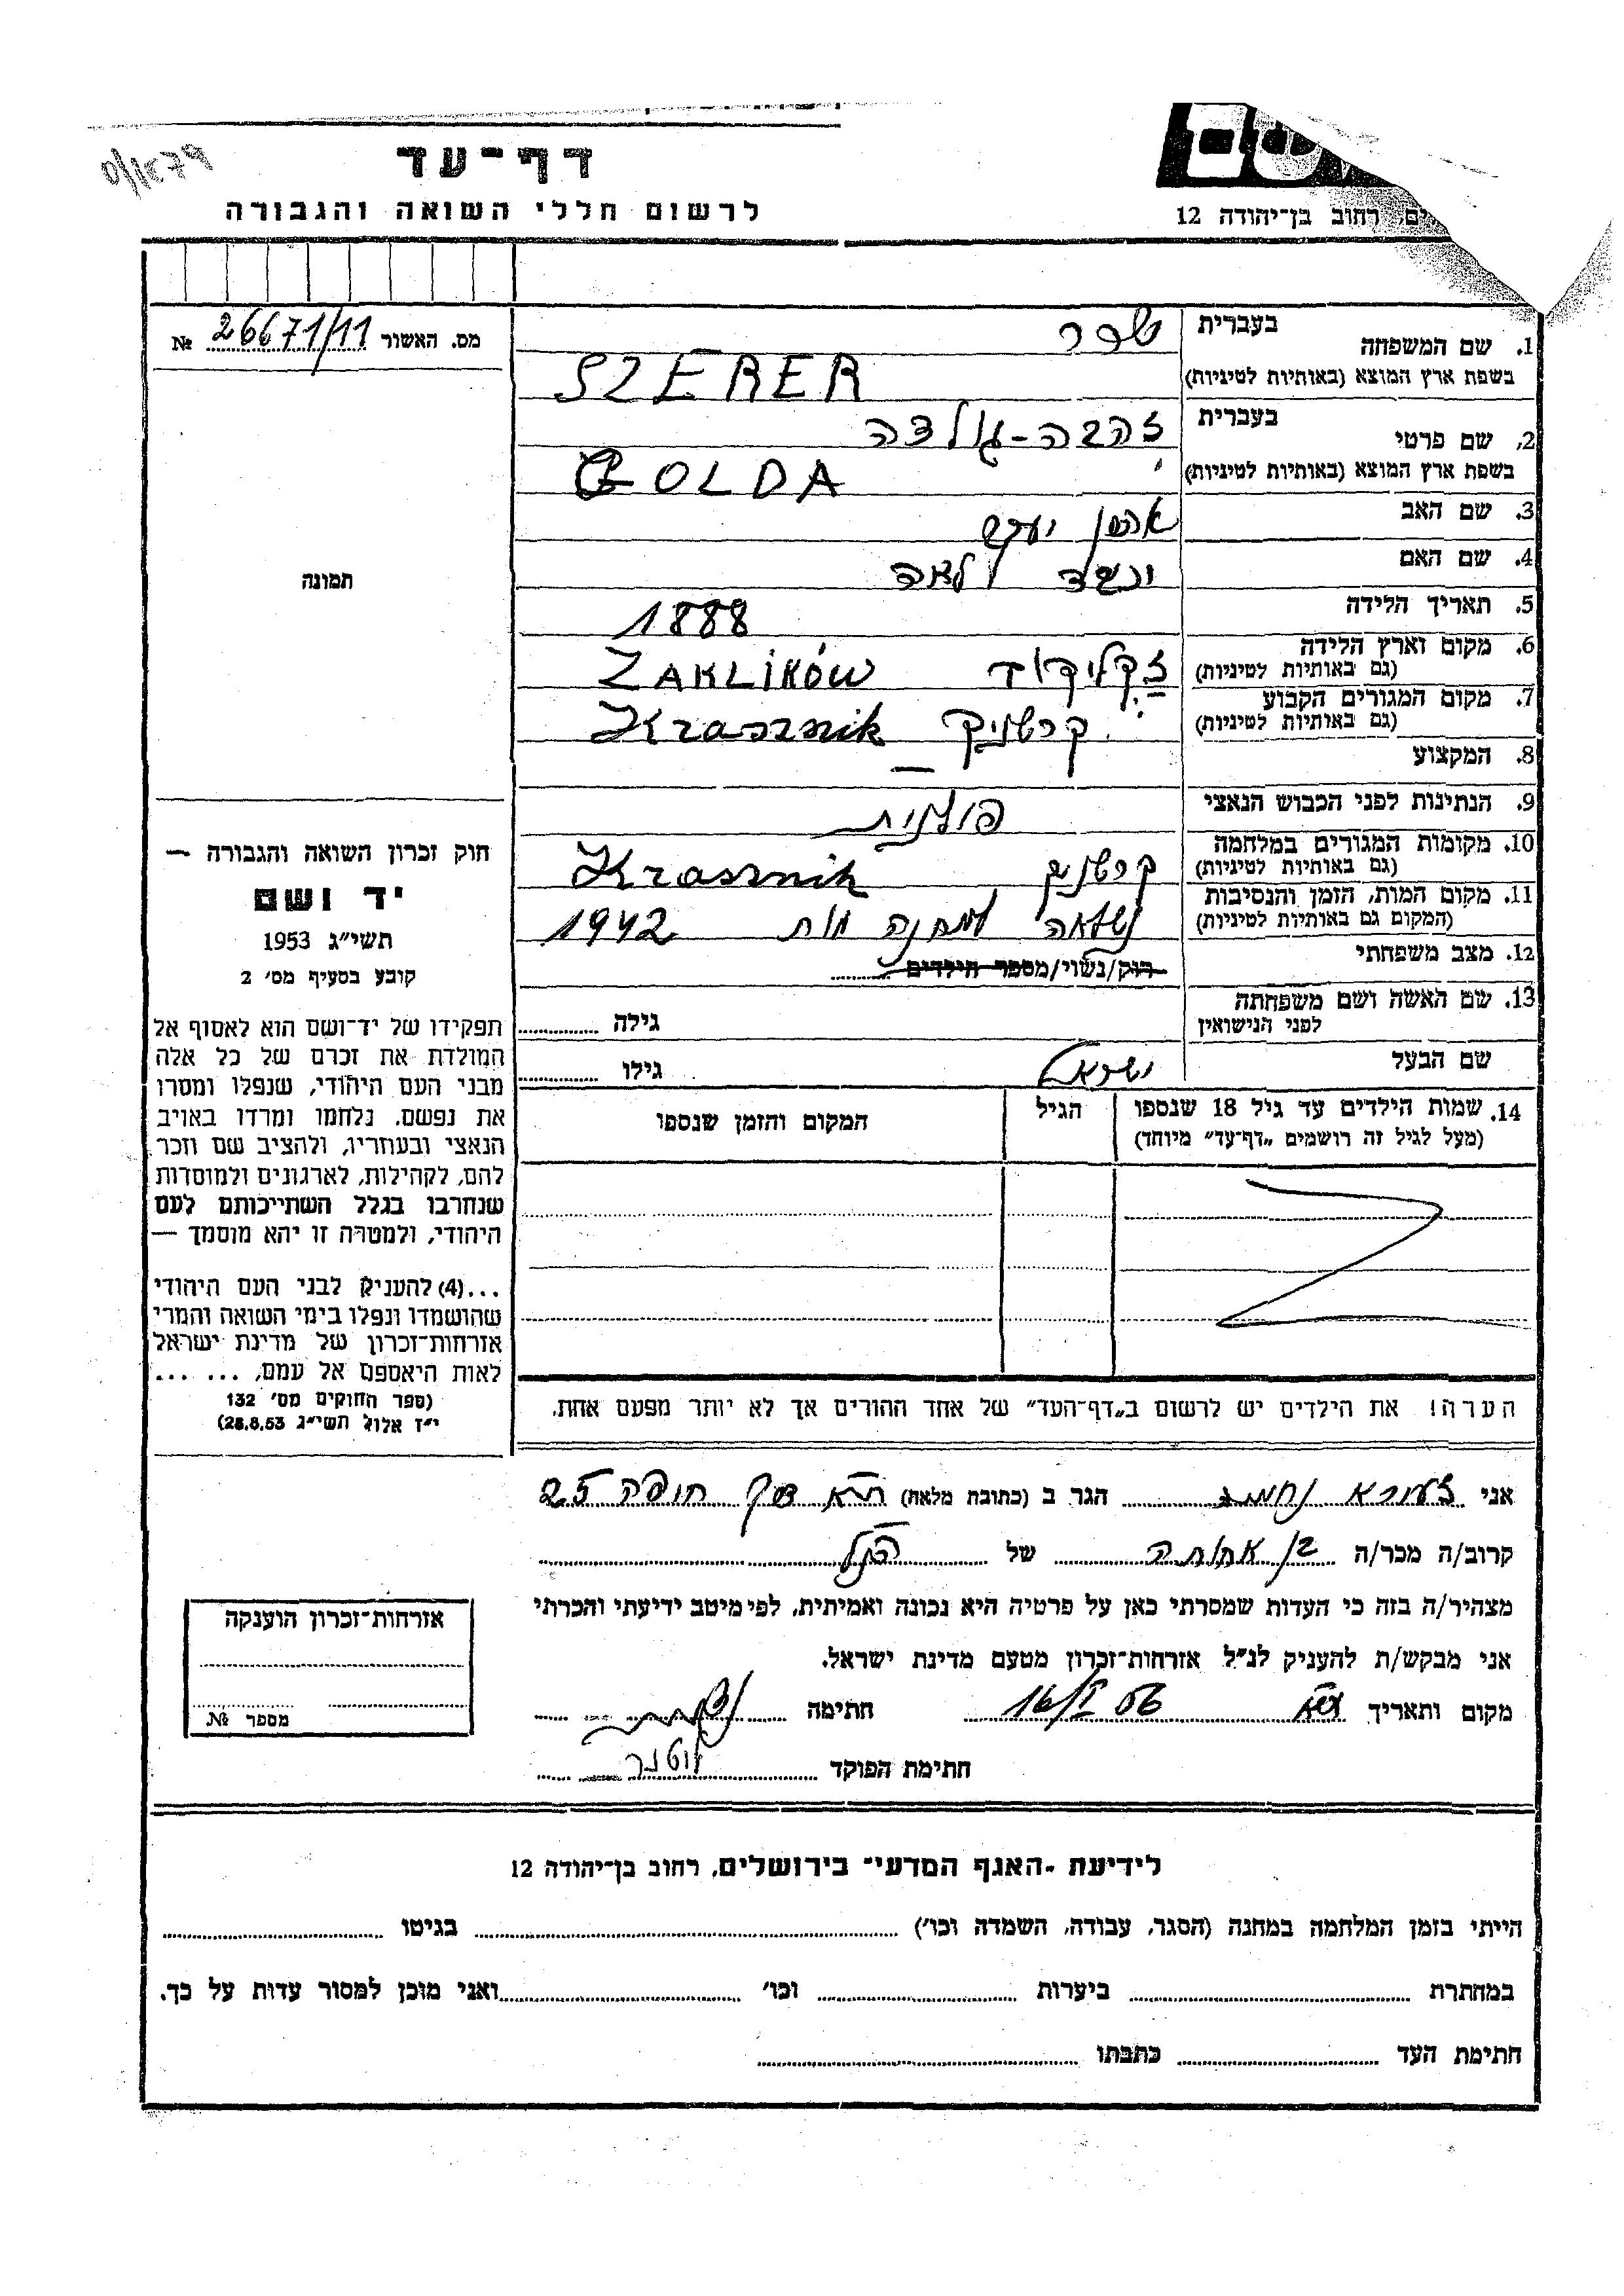 דף־עד
לרשום חללי השואה והגבורה
רחוב בן־יהודה 12
מס. האשור № 26671/11
תמונה
1. שם המשפחה בעברית שרר
בשפת ארץ המוצא (באותיות לטיניות) SZERER
2. שם פרטי בעברית זהבה-גולדה
בשפת ארץ המוצא (באותיות לטיניות) GOLDA
3. שם האב אהרן יעקב
4. שם האם לאה
5. תאריך הלידה 1888
6. מקום וארץ הלידה (גם באותיות לטיניות) זקליקוב ZAKLIKÓW
7. מקום המגורים הקבוע (גם באותיות לטיניות) קרשניק Krasznik
8. המקצוע —
9. הנתינות לפני הכבוש הנאצי פולנית
10. מקומות המגורים במלחמה (גם באותיות לטיניות) קרשניק Krasznik
11. מקום המות, הזמן והנסיבות (המקום גם באותיות לטיניות) נשלחה למחנה מות 1942
12. מצב משפחתי רוק/נשוי/מספר הילדים
13. שם האשה ושם משפחתה לפני הנישואין גילה
שם הבעל ישראל גילו
14. שמות הילדים עד גיל 18 שנספו הגיל המקום והזמן שנספו
(מעל לגיל זה רושמים "דף־עד" מיוחד)
הערה! את הילדים יש לרשום ב"דף־העד" של אחד ההורים אך לא יותר מפעם אחת.
חוק זכרון השואה והגבורה —
יד ושם
תשי"ג 1953
קובע בסעיף מס' 2
תפקידו של יד־ושם הוא לאסוף אל
המולדת את זכרם של כל אלה
מבני העם היהודי, שנפלו ומסרו
את נפשם, נלחמו ומרדו באויב
הנאצי ובעוזריו, ולהציב שם וזכר
להם, לקהילות, לארגונים ולמוסדות
שנחרבו בגלל השתייכותם לעם
היהודי, ולמטרה זו יהא מוסמך —
...(4) להעניק לבני העם היהודי
שהושמדו ונפלו בימי השואה והמרי
אזרחות־זכרון של מדינת ישראל
לאות היאספם אל עמם, ... ...
(ספר החוקים מס' 132
י"ז אלול תשי"ג 28.8.53)
אני נחמד הגר ב (כתובת מלאה) ת"א חופה 25
קרוב/ה מכר/ה בן אחותה של הנ"ל
מצהיר/ה בזה כי העדות שמסרתי כאן על פרטיה היא נכונה ואמיתית, לפי מיטב ידיעתי והכרתי
אני מבקש/ת להעניק לנ"ל אזרחות־זכרון מטעם מדינת ישראל.
מקום ותאריך ת"א 16/I 56 חתימה
חתימת הפוקד
אזרחות־זכרון הוענקה
מספר №
לידיעת -האגף המדעי־ בירושלים, רחוב בן־יהודה 12
הייתי בזמן המלחמה במחנה (הסגר, עבודה, השמדה וכו') בגיטו
במחתרת ביערות וכו' ואני מוכן למסור עדות על כך.
חתימת העד כתבתו